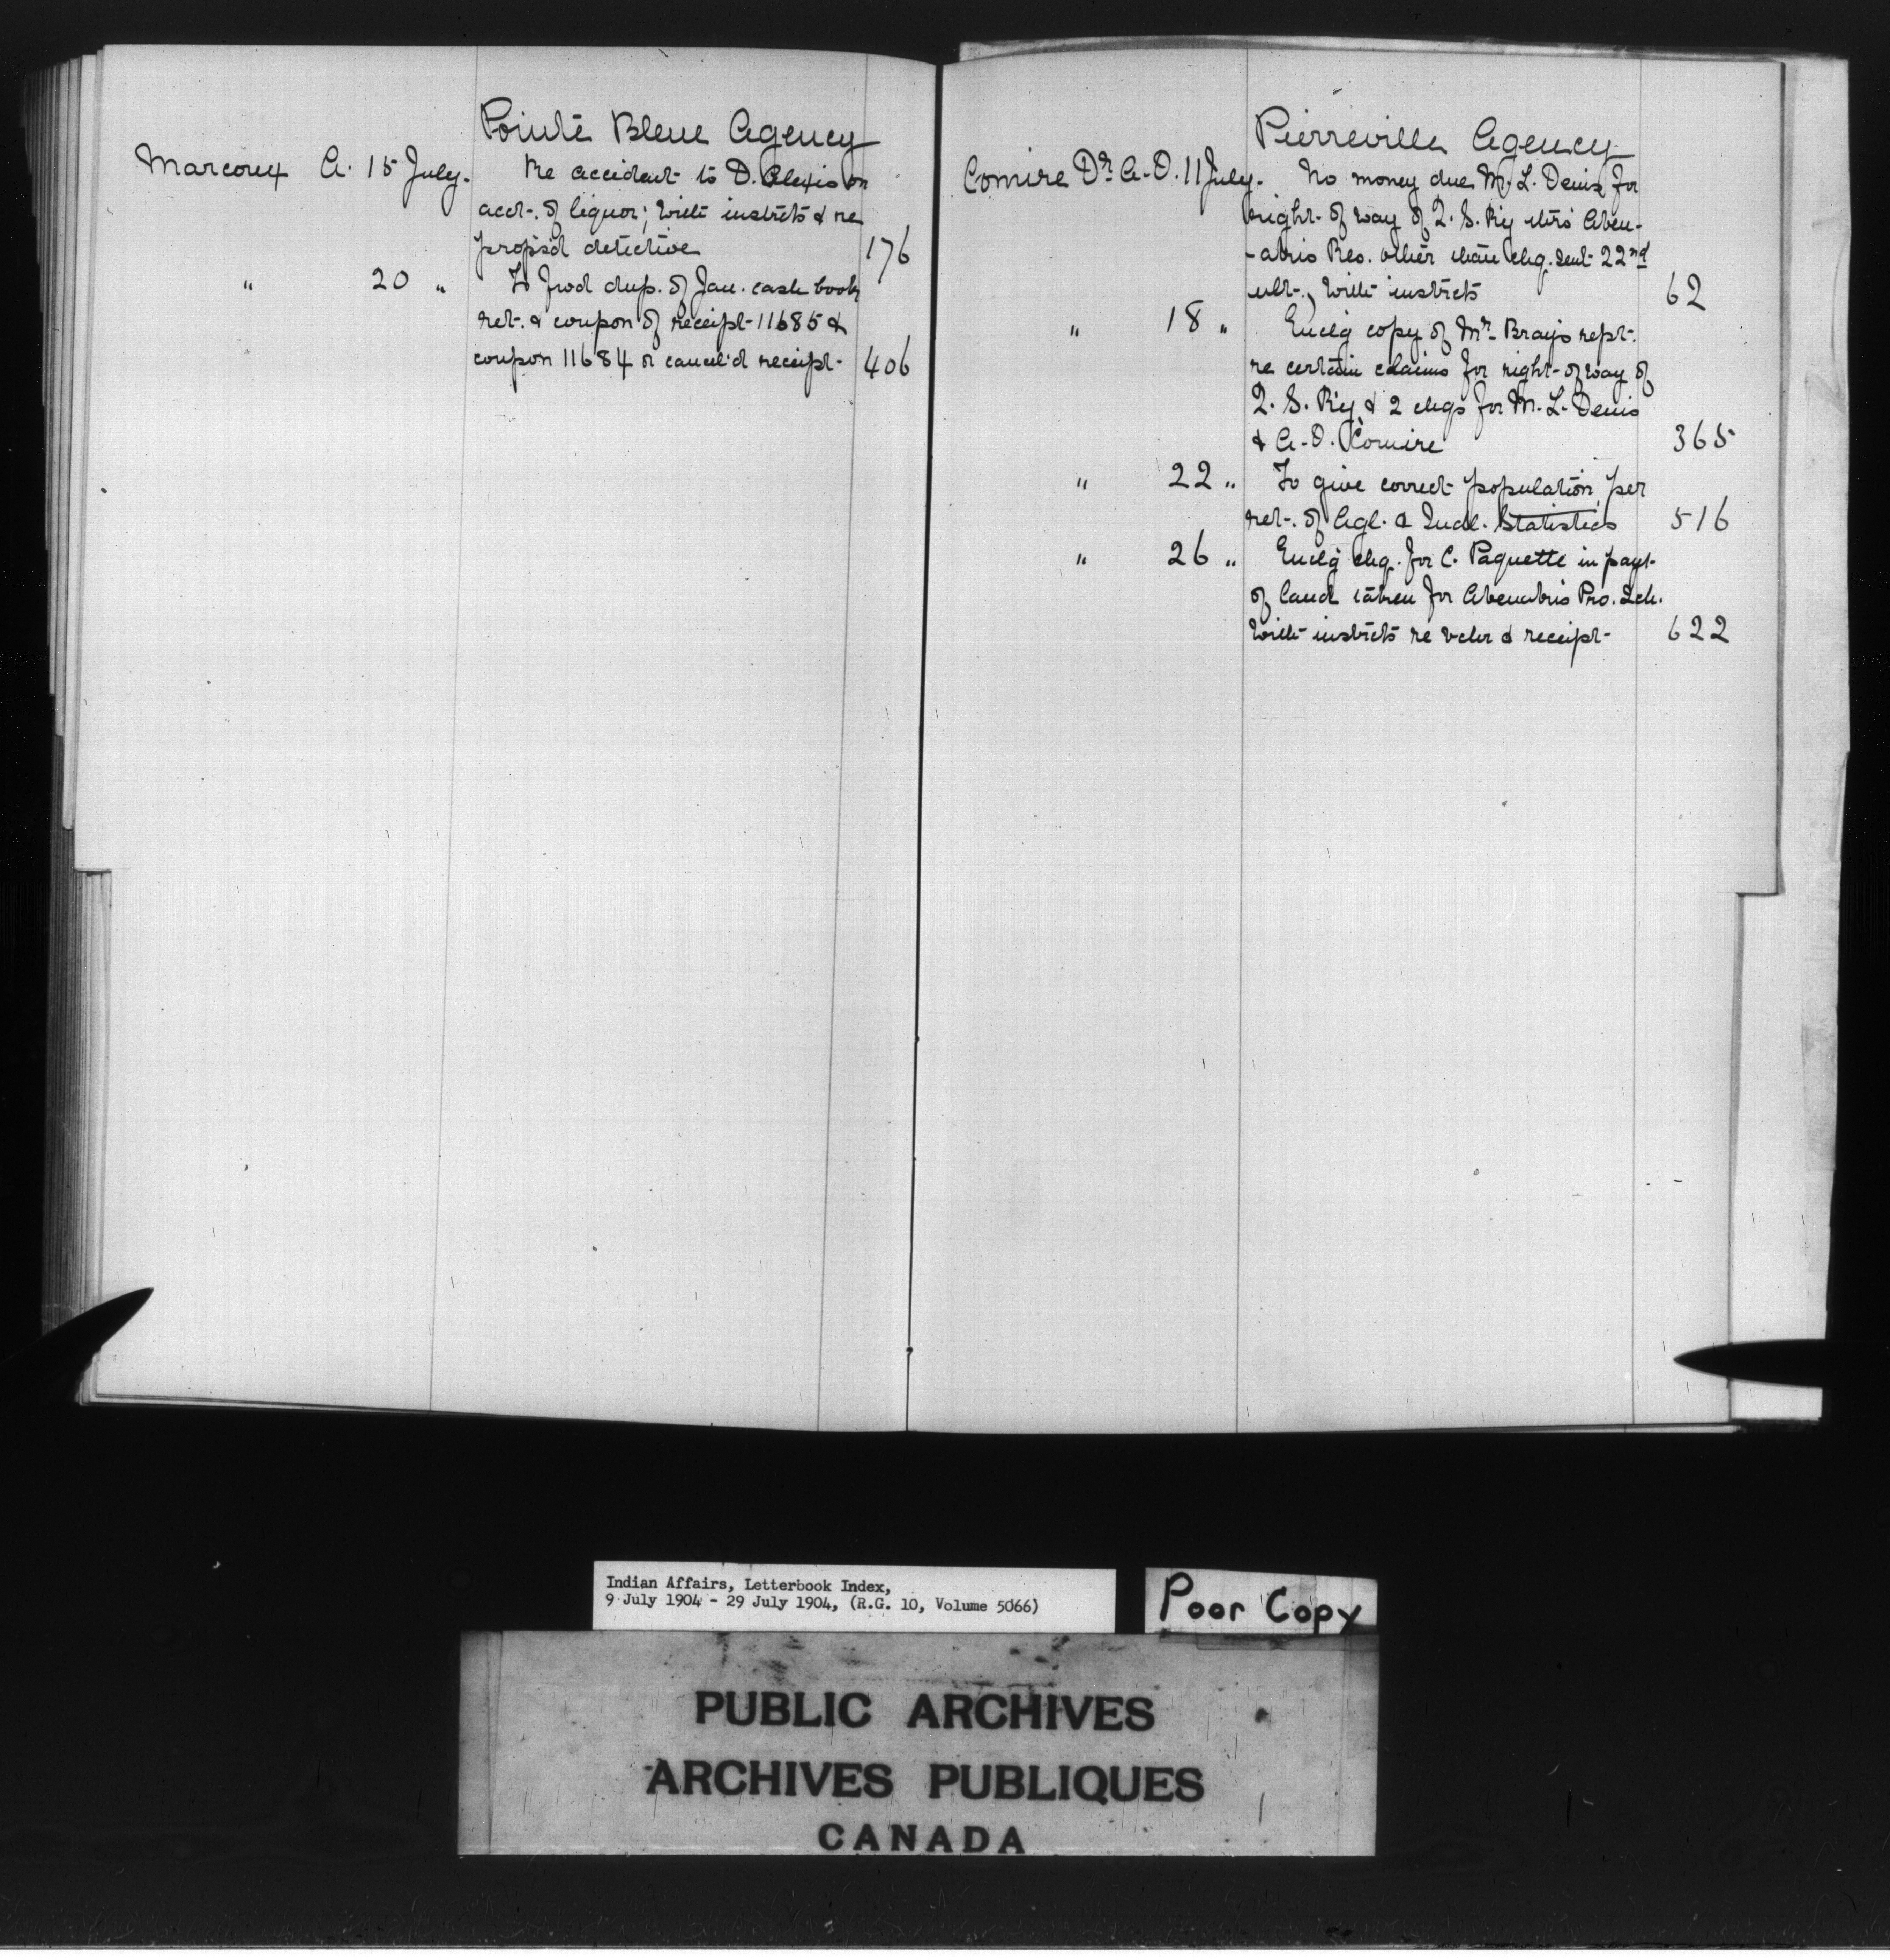 Pointe Bleue Agency
Marcoux A. 15 July. Re accident to D. Alexis on
acct. of liquor; with instrcts & re
propsd detective 176
" 20 " To fwd dup. of Jan. cash book
ret. & coupon of receipt 11685 &
coupon 11684 or cancel'd receipt 406
Pierreville Agency
Comire Dr. A.O. 11 July. No money due M. L. Denis for
right of way of Q. S. Ry thro' Aben-
-akis Res. other than chq. sent 22nd
ult., with instrcts 62
" 18 " Encl'g copy of Mr. Bray's rept.
re certain claims for right of way of
Q. S. R'y & 2 chqs for M. L. Denis
& A. O. Comire 365
" 22 " To give correct population, per
ret. of Agl. & Indl. Statistics 516
" 26 " Encl'g chq. for C. Paquette in payt.
of land taken for Abenakis Pro. Sch.
with instrcts re vchr & receipt 622
Indian Affairs, Letterbook Index,
9 July 1904 - 29 July 1904, (R.G. 10, Volume 5066)
Poor Copy
PUBLIC ARCHIVES
ARCHIVES PUBLIQUES
CANADA